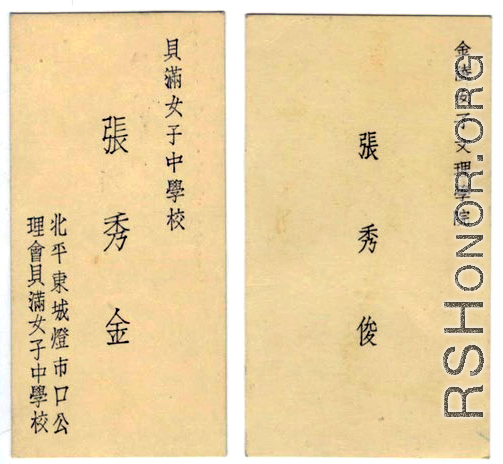 貝滿女子中學校
張秀金
北平東城燈市口公
理會貝滿女子中學校
金陵女子文理學院
張秀俊
RSHONOR.ORG